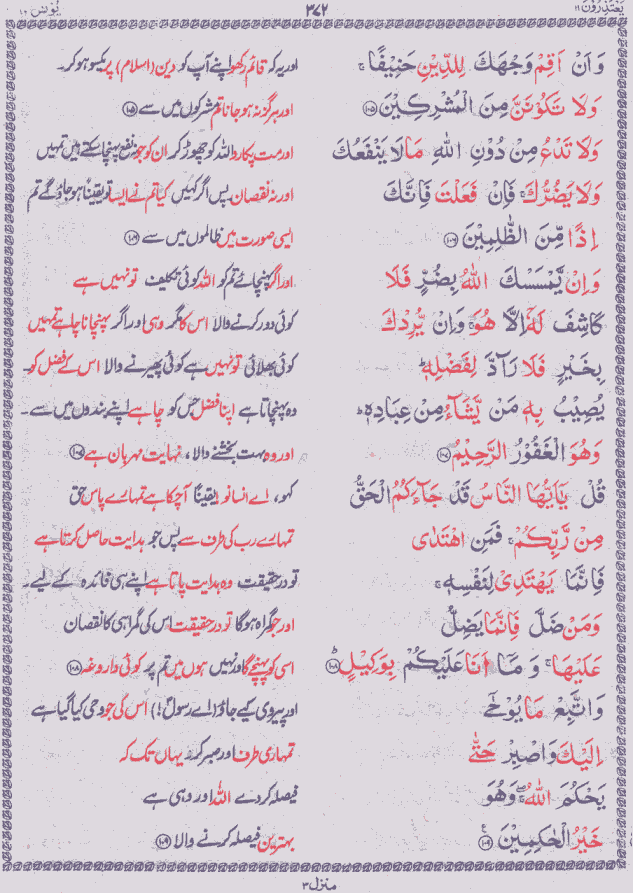 یعتذرون ۱۱
۳۷۲
یونس ۱۰
وَ اَنْ اَقِمْ وَجْهَكَ لِلدِّیْنِ حَنِیْفًا ۚ
اور یہ کہ قائم رکھو اپنے آپ کو دین (اسلام) پر یکسو ہو کر۔
وَ لَا تَكُوْنَنَّ مِنَ الْمُشْرِكِیْنَ ﴿۱۰۵﴾
اور ہرگز نہ ہو جانا تم مشرکوں میں سے ﴿۱۰۵﴾
وَ لَا تَدْعُ مِنْ دُوْنِ اللّٰهِ مَا لَا یَنْفَعُكَ
اور مت پکارو اللہ کو چھوڑ کر ان کو جو نہ نفع پہنچا سکتے ہیں تمہیں
وَ لَا یَضُرُّكَ ۚ فَاِنْ فَعَلْتَ فَاِنَّكَ
اور نہ نقصان پس اگر کہیں کیا تم نے ایسا تو یقیناً ہو جاؤ گے تم
اِذًا مِّنَ الظّٰلِمِیْنَ ﴿۱۰۶﴾
ایسی صورت میں ظالموں میں سے ﴿۱۰۶﴾
وَ اِنْ یَّمْسَسْكَ اللّٰهُ بِضُرٍّ فَلَا
اور اگر پہنچائے تم کو اللہ کوئی تکلیف تو نہیں ہے
كَاشِفَ لَهٗۤ اِلَّا هُوَ ۚ وَ اِنْ یُّرِدْكَ
کوئی دور کرنے والا اس کا مگر وہی اور اگر پہنچانا چاہے تمہیں
بِخَیْرٍ فَلَا رَآدَّ لِفَضْلِهٖ ؕ
کوئی بھلائی تو نہیں ہے کوئی پھیرنے والا اس کے فضل کو۔
یُصِیْبُ بِهٖ مَنْ یَّشَآءُ مِنْ عِبَادِهٖ ؕ
وہ پہنچاتا ہے اپنا فضل جس کو چاہے اپنے بندوں میں سے۔
وَ هُوَ الْغَفُوْرُ الرَّحِیْمُ ﴿۱۰۷﴾
اور وہ بہت بخشنے والا، نہایت مہربان ہے ﴿۱۰۷﴾
قُلْ یٰۤاَیُّهَا النَّاسُ قَدْ جَآءَكُمُ الْحَقُّ
کہو، اے انسانو! یقیناً آچکا ہے تمہارے پاس حق
مِنْ رَّبِّكُمْ ۚ فَمَنِ اهْتَدٰى
تمہارے رب کی طرف سے پس جو ہدایت حاصل کرتا ہے
فَاِنَّمَا یَهْتَدِیْ لِنَفْسِهٖ ۚ
تو درحقیقت وہ ہدایت پاتا ہے اپنے ہی فائدہ کے لیے۔
وَ مَنْ ضَلَّ فَاِنَّمَا یَضِلُّ
اور جو گمراہ ہوگا تو درحقیقت اس کی گمراہی کا نقصان
عَلَیْهَا ۚ وَ مَاۤ اَنَا عَلَیْكُمْ بِوَكِیْلٍ ﴿۱۰۸﴾ؕ
اسی کو پہنچے گا اور نہیں ہوں میں تم پر کوئی داروغہ ﴿۱۰۸﴾
وَ اتَّبِعْ مَا یُوْحٰۤى
اور پیروی کیے جاؤ (اے رسول!) اس کی جو وحی کیا گیا ہے
اِلَیْكَ وَ اصْبِرْ حَتّٰى
تمہاری طرف اور صبر کرو یہاں تک کہ
یَحْكُمَ اللّٰهُ ۖۚ وَ هُوَ
فیصلہ کردے اللہ اور وہی ہے
خَیْرُ الْحٰكِمِیْنَ ﴿۱۰۹﴾
بہترین فیصلہ کرنے والا ﴿۱۰۹﴾
منزل ۳